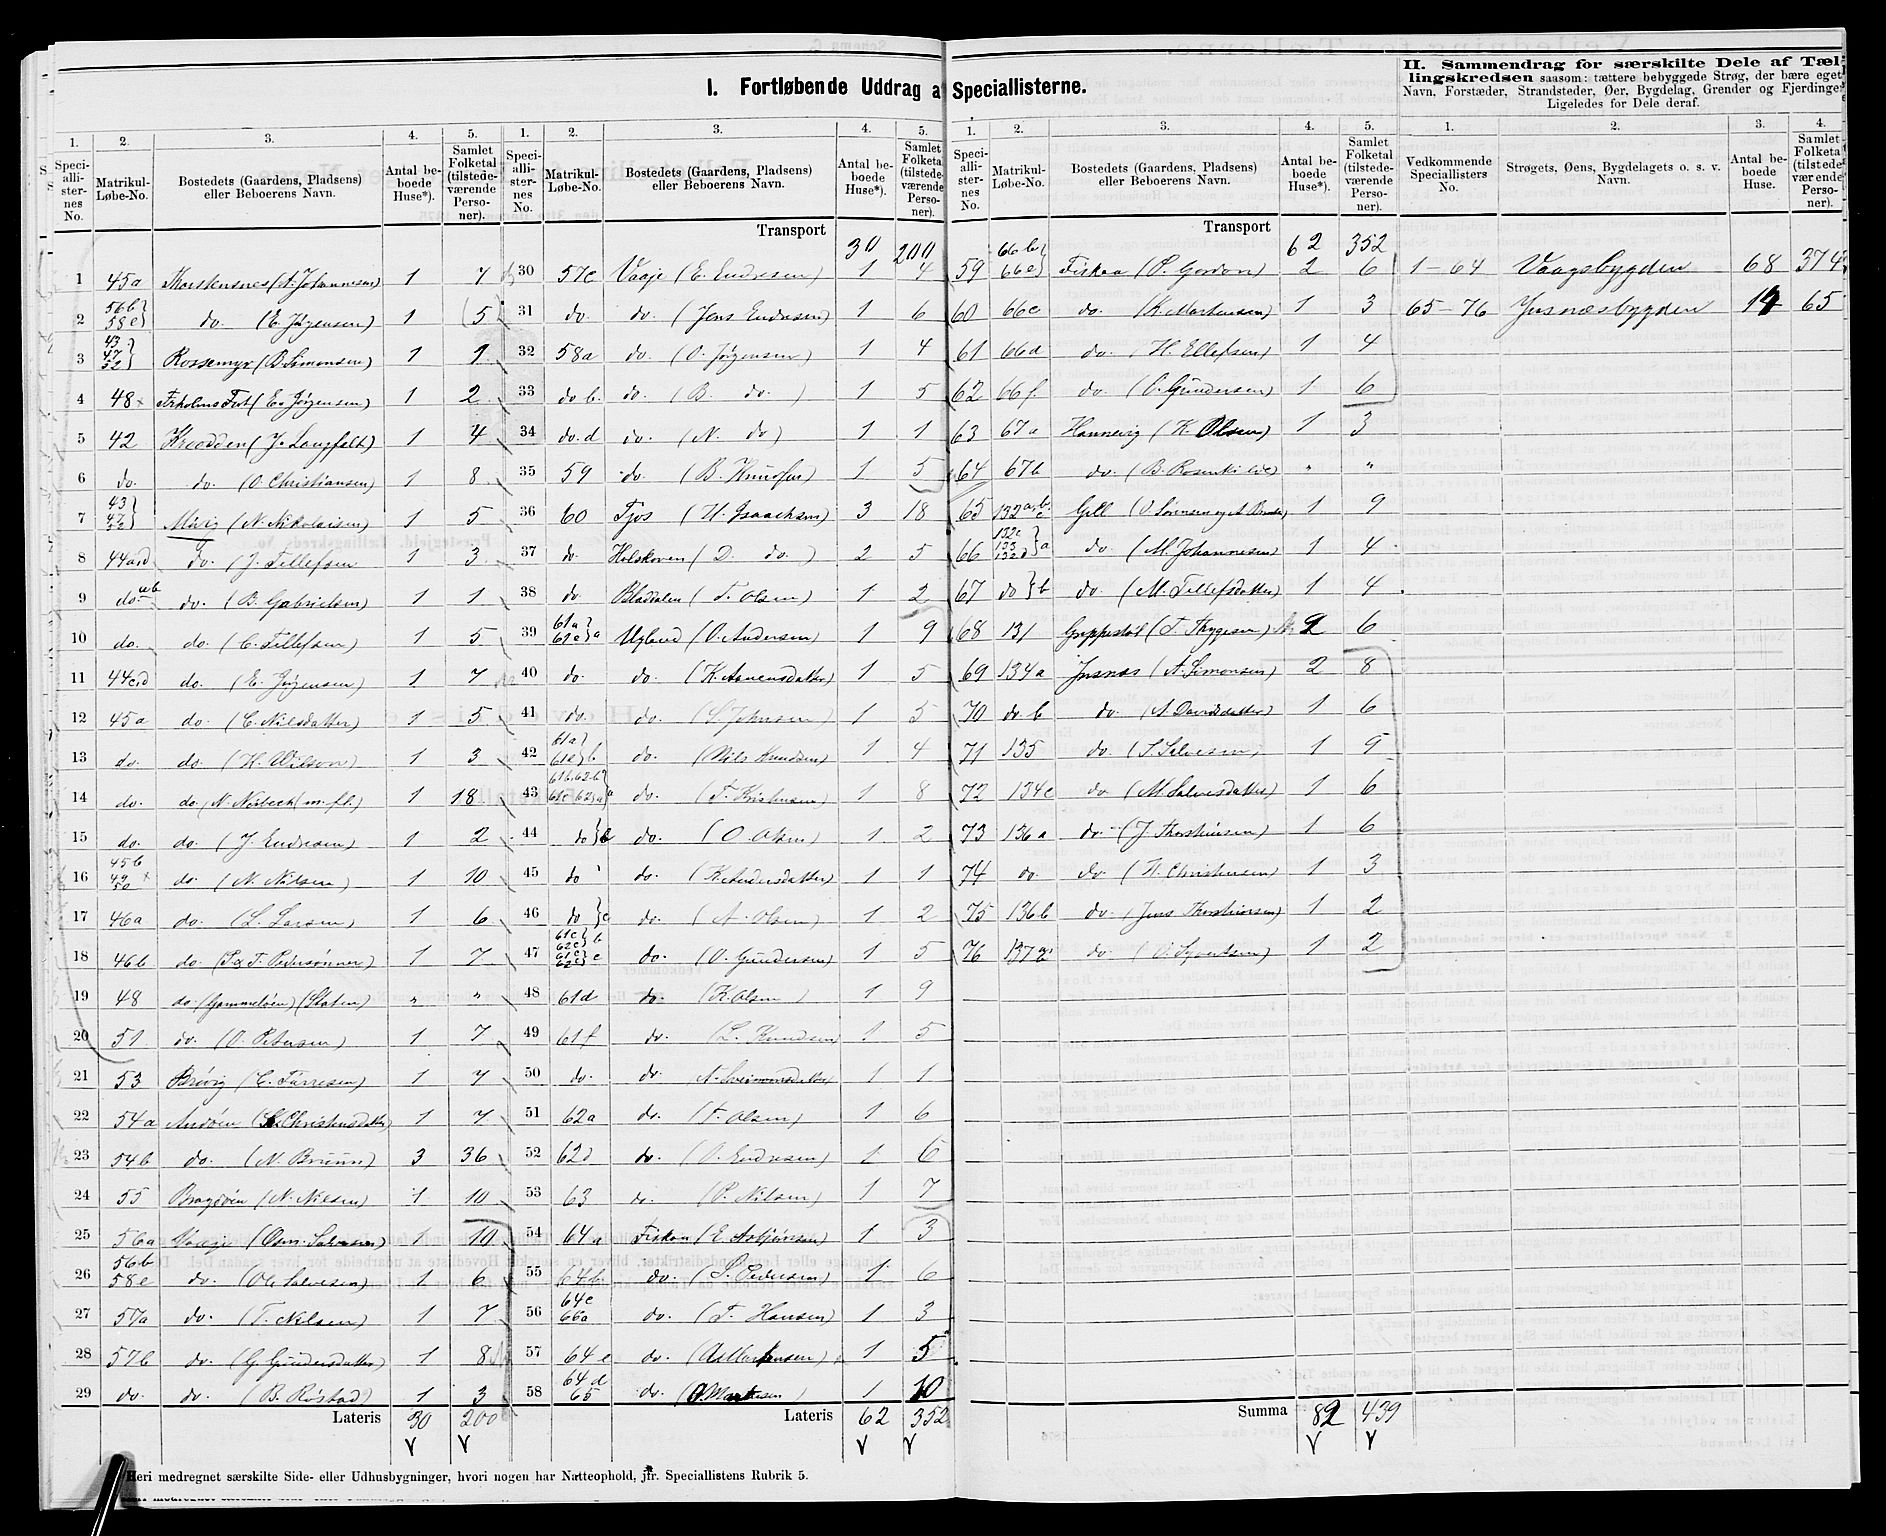 I. Fortløbende Uddrag a Speciallisterne.
II. Sammendrag for særskilte Dele af Tæl-
lingskredsen saasom: tættere bebyggede Strøg, der bære eget
Navn, Forstæder, Strandsteder, Øer, Bygdelag, Grender og Fjerdinger
Ligeledes for Dele deraf.
1. 2. 3. 4. 5.
Speci-alli-ster-nes No. Matrikul-Løbe-No. Bostedets (Gaardens, Pladsens) eller Beboerens Navn. Antal be-boede Huse*). Samlet Folketal (tilstede-værende Perso-ner).
1 45a (A. Johannesen) 1 7
2 56b 58e do. (E. Jørgensen) 1 5
3 43 47 52 Rossemyr (B. Simonsen) 1 1
4 48 (E. Jørgensen) 1 2
5 42 Krodden (J. Langfelt) 1 4
6 do. do. (O. Christiansen) 1 8
7 43 47 52 (N. Nikolaisen) 1 5
8 44a.d do. (J. Tellefsen 1 3
9 do. do. (B. Gabrielsen) 1 1
10 do. do. (C. Tellefsen) 1 5
11 44c.d do. (E. Jørgensen) 1 7
12 45a do. (C. Nilsdatter) 1 5
13 do. do. (H. Wilson) 1 3
14 do. do. (N. Nerbech m. fl.) 1 18
15 do. do. (J. Endresen) 1 2
16 45b 49 50 do. (N. Nilsen) 1 10
17 46a do. (L. Larsen) 1 6
18 46b do. (S & T. Pedersønner) 1 7
19 48 do. (Gammeløen) (Staten) " "
20 51 do. (O. Petersen) 1 7
21 53 Brøvig (C. Tarresen) 1 7
22 54a Andøen (Christensdatter) 1 7
23 54b do. (N. Bruun) 3 36
24 55 Bragdøen (N. Nilsen) 1 10
25 56a Vaaje (Osm. Salvesen) 1 10
26 56b 58e do. (Ole Salvesen) 1 6
27 57a do. (T. Nilsen) 1 7
28 57b do. (G. Gundersdatter) 1 8
29 do. do. (B. Røstad) 1 3
Lateris 30 200
1. 2. 3. 4. 5.
Speci-alli-ster-nes No. Matrikul-Løbe-No. Bostedets (Gaardens, Pladsens) eller Beboerens Navn. Antal be-boede Huse*). Samlet Folketal (tilstede-værende Perso-ner).
Transport 30 200
30 57c Vaaje (E. Endresen) 1 4
31 do. do. (Jens Endresen) 1 6
32 58a do. (O. Jørgensen) 1 4
33 do b. do. (B. do.) 1 5
34 do. d do. (N. do) 1 1
35 59 do. (B. ) 1 5
36 60 Tjos (H. Isaachsen) 3 18
37 do. Holskoven (D. do.) 2 5
38 do. Bladdalen (T. Olsen) 1 2
39 61a 61e a Ugland (O. Andersen) 1 9
40 do. do. (K. Aanensdatter) 1 5
41 do. do. (S. Johnsen) 1 5
42 61a 61e b do. (Nils Knudsen) 1 4
43 61b.62.b 61c 62.a a do. (T. Kristensen) 1 8
44 do b do. (O. Olsen) 1 2
45 do do. (K. Andersdatter) 1 1
46 do c do. (A. Olsen) 1 2
47 61c 62c b 61c 62c c do. (O. Gundersen) 1 5
48 61d do. (K. Olsen) 1 9
49 61f do. (L. Knudsen) 1 5
50 do. do. 1 1
51 62a do. (T. Olsen) 1 6
52 62d do. (O. Endresen) 1 6
53 63 do. (P. Nilsen) 1 7
54 64a Fiskaa (E. Asbjørnsen) 1 3
55 64b do. (S. Pedersen) 1 6
56 64c 66a do. (T. Hansen) 1 3
57 64e do. 1 5
58 64d 65 do. 1 10
Lateris 62 352
1. 2. 3. 4. 5.
Speci-alli-ster-nes No. Matrikul-Løbe-No. Bostedets (Gaardens, Pladsens) eller Beboerens Navn. Antal be-boede Huse*). Samlet Folketal (tilstede-værende Perso-ner).
Transport 62 352
59 66b 66e Fiskaa (P. Gordon) 2 6
60 66c do. (K. Mortensen) 1 3
61 66d do. (H. Ellefsen) 1 4
62 66f. do. (O. Gundersen) 1 6
63 67a Hannevig (K. Olsen) 1 3
64 67b do. (B. Rosenkilde) " "
65 132a,b. c Gill (O. Sørensen og A. ) 1 9
66 132c 133 132d a do (M. Johannesen) 1 4
67 do b do. (M. Tellefsdatter) 1 4
68 131 (T. Thygesen) 2 6
69 134a Jusnæs (A. Simonsen) 2 8
70 do. b do. (A. Davidsdatter) 1 6
71 135 do. (S. Salvesen) 1 9
72 134c do (M. Salvesdatter) 1 6
73 136a do. (J Thorstensen) 1 6
74 do. do. (H. Christensen) 1 3
75 136b do. (Jens Thorstensen) 1 2
76 137 do. (O. Syvertsen) 1 2
Summa 82 439
1. 2. 3. 4.
Vedkommende Speciallisters No. Strøgets, Øens, Bygdelagets o. s. v. Navn. Antal be-boede Huse. Samlet Folketal (tilstede-værende Perso-ner).
1–64 Vaagsbygden 68 374
65–76 Jusnæsbygden 14 65
*Heri medregnet særskilte Side- eller Udhusbygninger, hvori nogen har Natteophold, jfr. Speciallistens Rubrik 5.